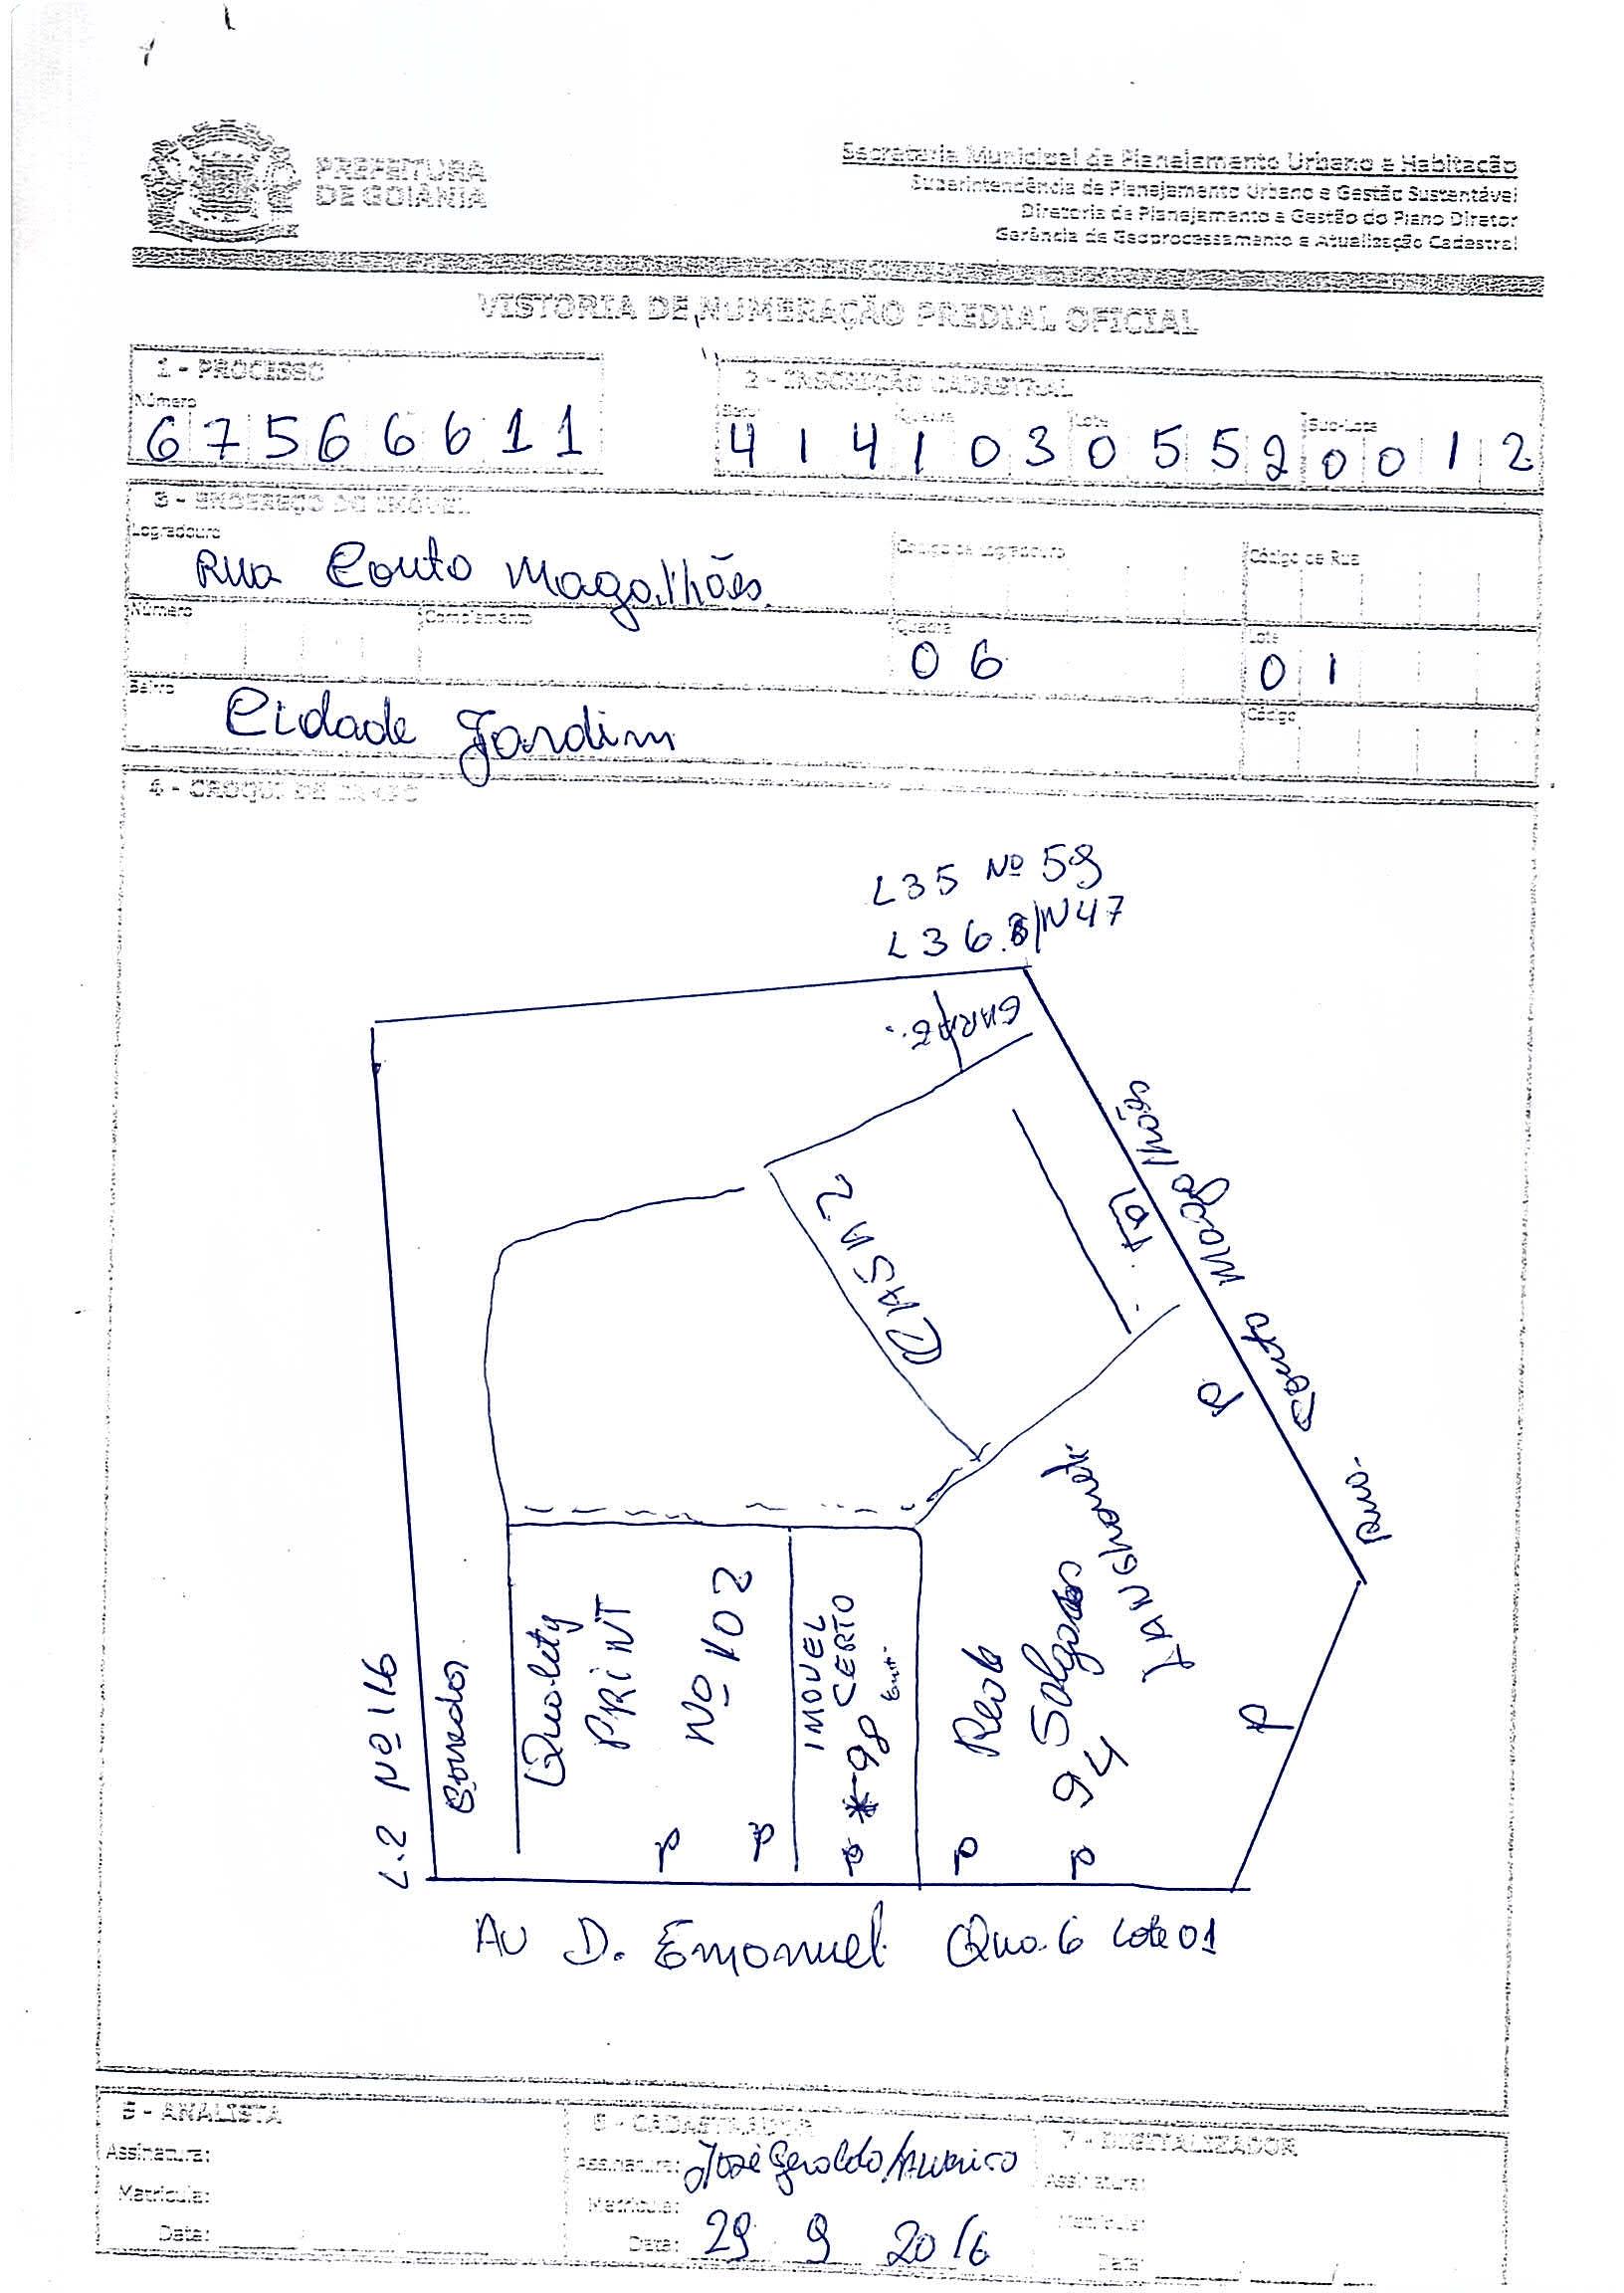 PREFEITURA
DE GOIÂNIA
Secretaria Municipal de Planejamento Urbano e Habitação
Superintendência de Planejamento Urbano e Gestão Sustentável
Diretoria de Planejamento e Gestão do Plano Diretor
Gerência de Geoprocessamento e Atualização Cadastral
VISTORIA DE NUMERAÇÃO PREDIAL OFICIAL
1 - PROCESSO
Número
67566611
2 - INSCRIÇÃO CADASTRAL
Setor Quadra Lote Sub-Lote
41410305520012
3 - ENDEREÇO DO IMÓVEL
Logradouro Código de Logradouro Código de Rua
Rua Couto Magalhães
Número Complemento Quadra Lote
06 01
Bairro Código
Cidade Jardim
4 - CROQUI DE CAMPO
L35 Nº 59
L36. /N47
GARAG.
CASA 2
Rua. Couto Magalhães
P
L.2 Nº 116
Corredor
Quality
PRINT
Nº 102
IMOVEL
CERTO
* 98
Real
Salgados
94
LANCHonete
P
P P P P P
AV D. Emanuel Qua. 6 Lote 01
5 - ANALISTA
Assinatura:
Matrícula:
Data:
6 - CADASTRADOR
Assinatura: José Geraldo
Matrícula:
Data: 29 9 2016
7 - DIGITALIZADOR
Assinatura:
Matrícula:
Data: